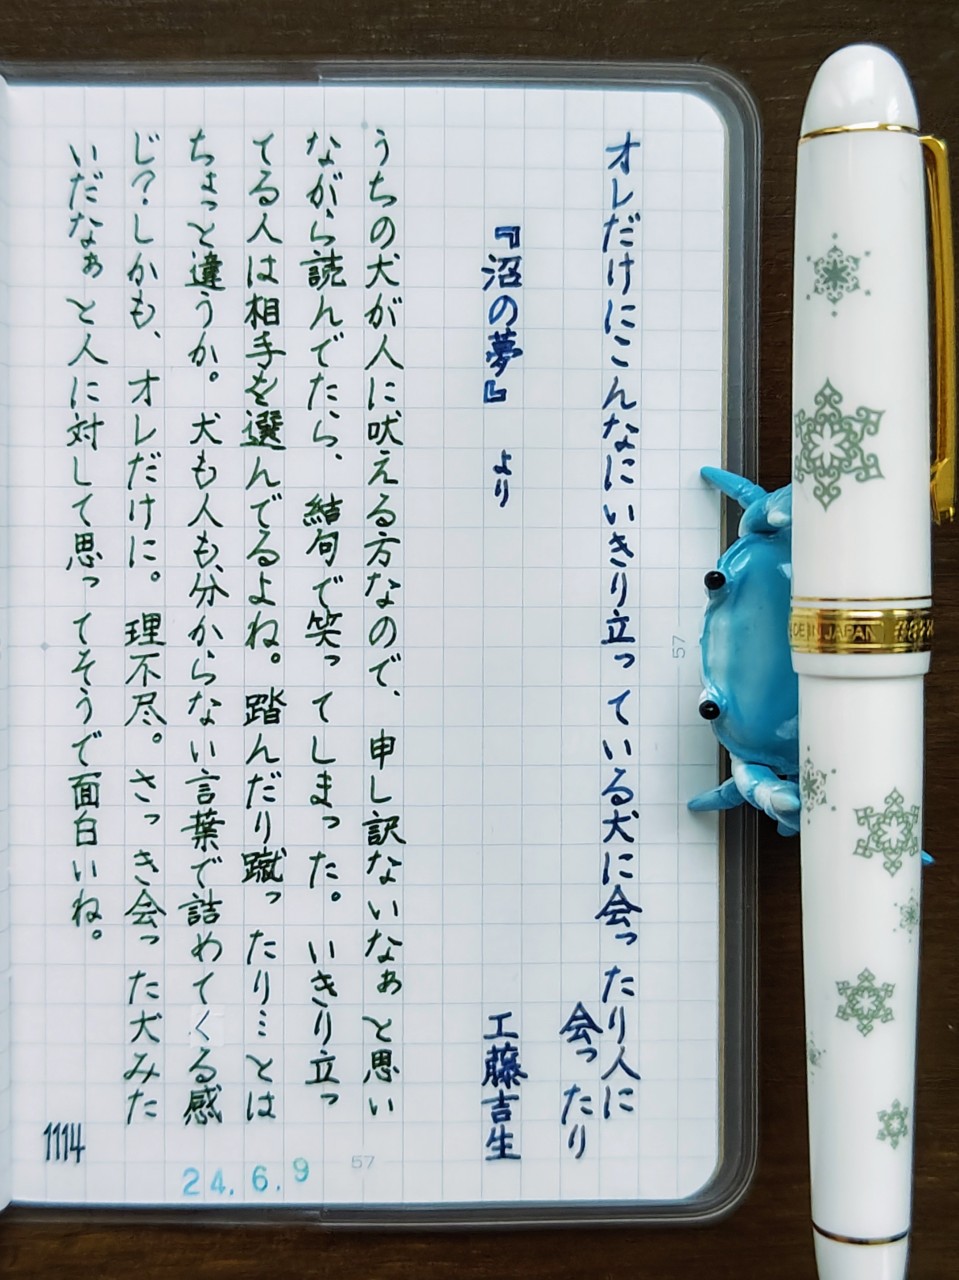 オレだけにこんなにいきり立っている犬に会ったり人に
会ったり
『沼の夢』 より
工藤吉生
うちの犬が人に吠える方なので、申し訳ないなぁと思い
ながら読んでたら、結句で笑ってしまった。いきり立っ
てる人は相手を選んでるよね。踏んだり蹴ったり…とは
ちょっと違うか。犬も人も、分からない言葉で詰めてくる感
じ?しかも、オレだけに。理不尽。さっき会った犬みた
いだなぁと人に対して思ってそうで面白いね。
1114
24.6.9
57
57
DE IN JAPAN